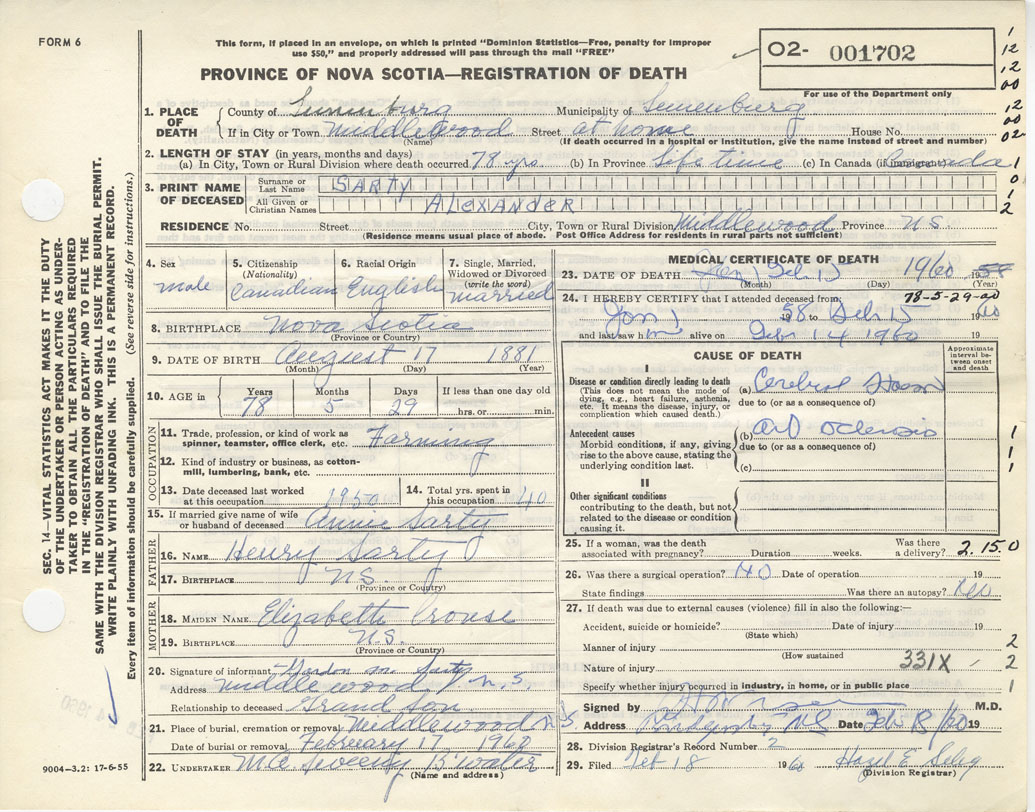 FORM 6
This form, if placed in an envelope, on which is printed "Dominion Statistics—Free, penalty for improper
use $50," and properly addressed will pass through the mail "FREE"
O2- 001702
For use of the Department only
PROVINCE OF NOVA SCOTIA—REGISTRATION OF DEATH
1. PLACE OF DEATH County of Lunenburg Municipality of Lunenburg
If in City or Town Middlewood Street at home House No.
(Name) (If death occurred in a hospital or institution, give the name instead of street and number)
2. LENGTH OF STAY (in years, months and days)
(a) In City, Town or Rural Division where death occurred 78 yrs. (b) In Province Life time (c) In Canada (if immigrant) Canada
3. PRINT NAME OF DECEASED Surname or Last Name SARTY
All Given or Christian Names ALEXANDER
RESIDENCE No. Street City, Town or Rural Division Middlewood Province N.S.
(Residence means usual place of abode. Post Office Address for residents in rural parts not sufficient)
4. Sex male
5. Citizenship (Nationality) Canadian
6. Racial Origin English
7. Single, Married, Widowed or Divorced (write the word) married
8. BIRTHPLACE Nova Scotia
(Province or Country)
9. DATE OF BIRTH August 17 1881
(Month) (Day) (Year)
10. AGE in Years 78 Months 5 Days 29 If less than one day old hrs. or min.
OCCUPATION
11. Trade, profession, or kind of work as spinner, teamster, office clerk, etc. Farming
12. Kind of industry or business, as cotton-mill, lumbering, bank, etc.
13. Date deceased last worked at this occupation 1950
14. Total yrs. spent in this occupation 40
15. If married give name of wife or husband of deceased Annie Sarty
FATHER
16. NAME Henry Sarty
17. BIRTHPLACE N.S.
(Province or Country)
MOTHER
18. MAIDEN NAME Elizabeth Crouse
19. BIRTHPLACE N.S.
(Province or Country)
20. Signature of informant Gordon M. Sarty
Address Middlewood, N.S.
Relationship to deceased Grand son
21. Place of burial, cremation or removal Middlewood N.S
Date of burial or removal February 17 1960
22. UNDERTAKER Sweeny B'water
(Name and address)
9004—3.2: 17-6-55
MEDICAL CERTIFICATE OF DEATH
23. DATE OF DEATH Feb 15 19/60 19
(Month) (Day) (Year)
78-5-29-00
24. I HEREBY CERTIFY that I attended deceased from
Jan 1 1958 to Feb 15 1960
and last saw h im alive on Feb 14 1960 19
CAUSE OF DEATH
Approximate interval between onset and death
I
Disease or condition directly leading to death
(This does not mean the mode of dying, e.g., heart failure, asthenia, etc. It means the disease, injury, or complication which caused death.)
(a) Cerebral Haem
due to (or as a consequence of)
Antecedent causes
Morbid conditions, if any, giving rise to the above cause, stating the underlying condition last.
(b)
due to (or as a consequence of)
(c)
II
Other significant conditions
contributing to the death, but not related to the disease or condition causing it.
25. If a woman, was the death associated with pregnancy? Duration weeks. Was there a delivery? 2.15.0
26. Was there a surgical operation? NO Date of operation 19
State findings Was there an autopsy? No
27. If death was due to external causes (violence) fill in also the following:—
Accident, suicide or homicide? Date of injury 19
(State which)
Manner of injury
(How sustained)
Nature of injury 331X
Specify whether injury occurred in industry, in home, or in public place
Signed by M.D.
Address Date Feb 18/60 19
28. Division Registrar's Record Number 2
29. Filed Feb 18 1960 Hazel E
(Division Registrar)
SEC. 14—VITAL STATISTICS ACT MAKES IT THE DUTY
OF THE UNDERTAKER OR PERSON ACTING AS UNDER-
TAKER TO OBTAIN ALL THE PARTICULARS REQUIRED
IN THE "REGISTRATION OF DEATH" AND TO FILE THE
SAME WITH THE DIVISION REGISTRAR WHO SHALL ISSUE THE BURIAL PERMIT.
WRITE PLAINLY WITH UNFADING INK. THIS IS A PERMANENT RECORD.
Every item of information should be carefully supplied. (See reverse side for instructions.)
1
12
12
00
12
00
02
1
0
1
2
1
1
1
2
2
1